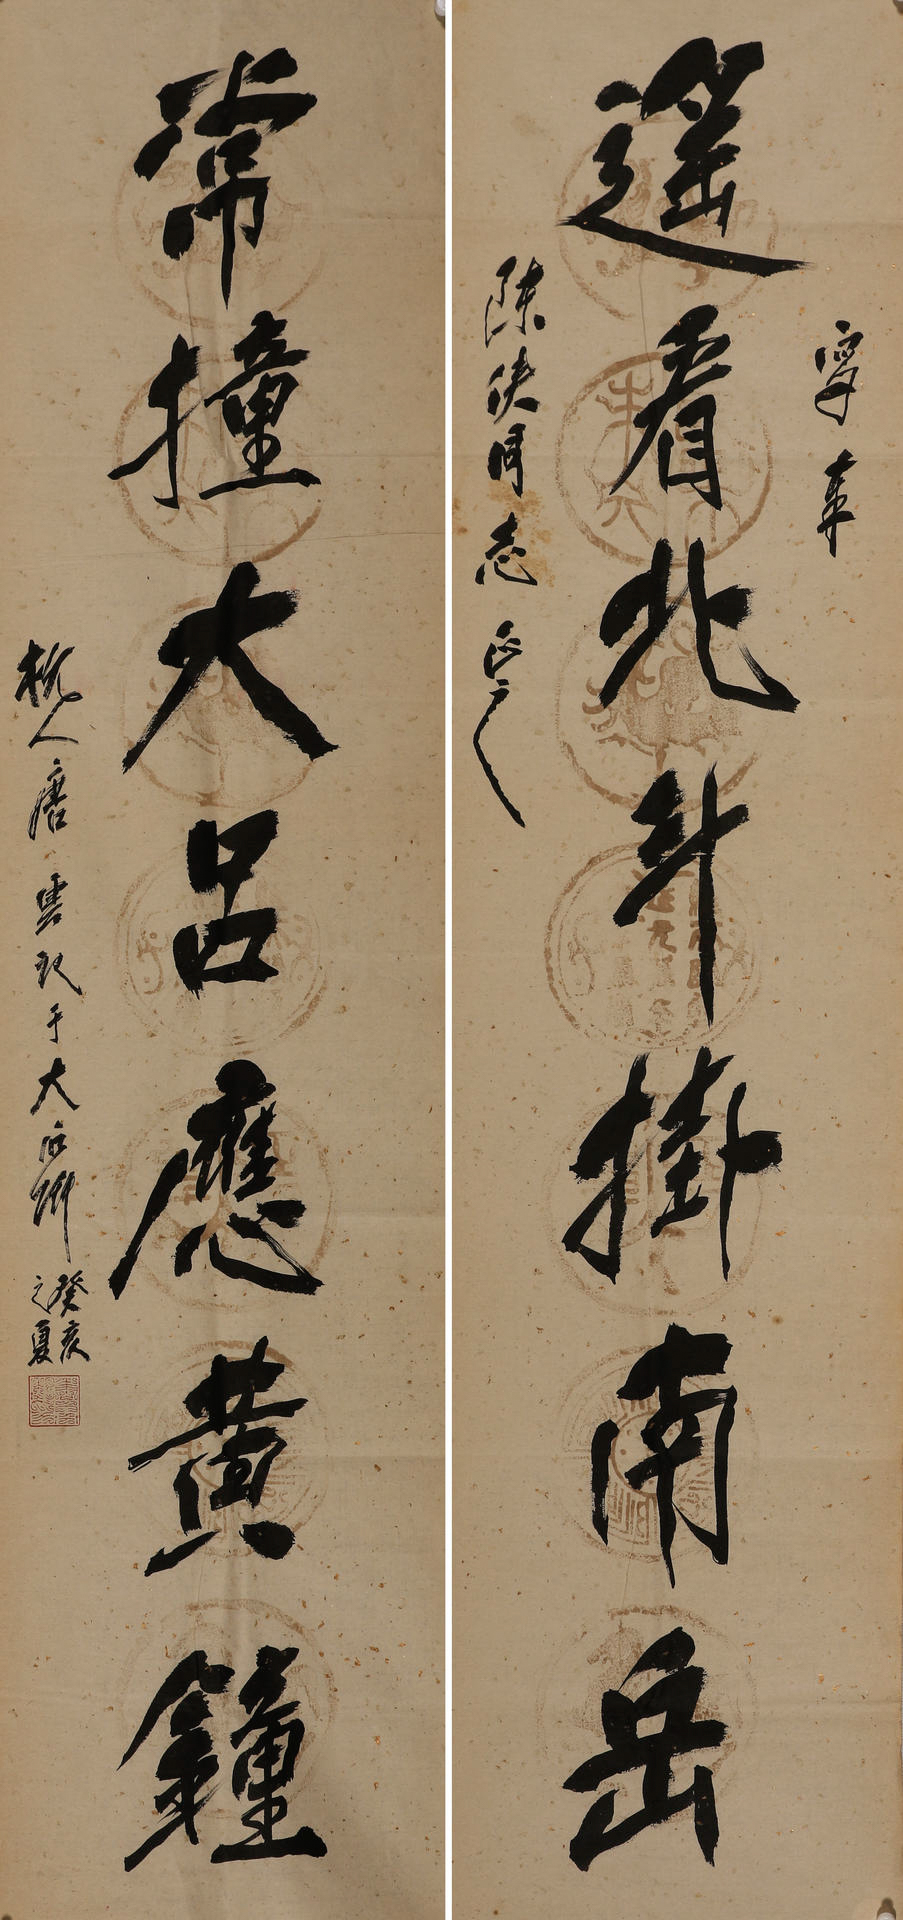 遥看北斗掛南岳
寧華
陳俠同志正之
常撞大吕應黄鐘
杭人唐雲玖于大石斋
癸亥
之夏